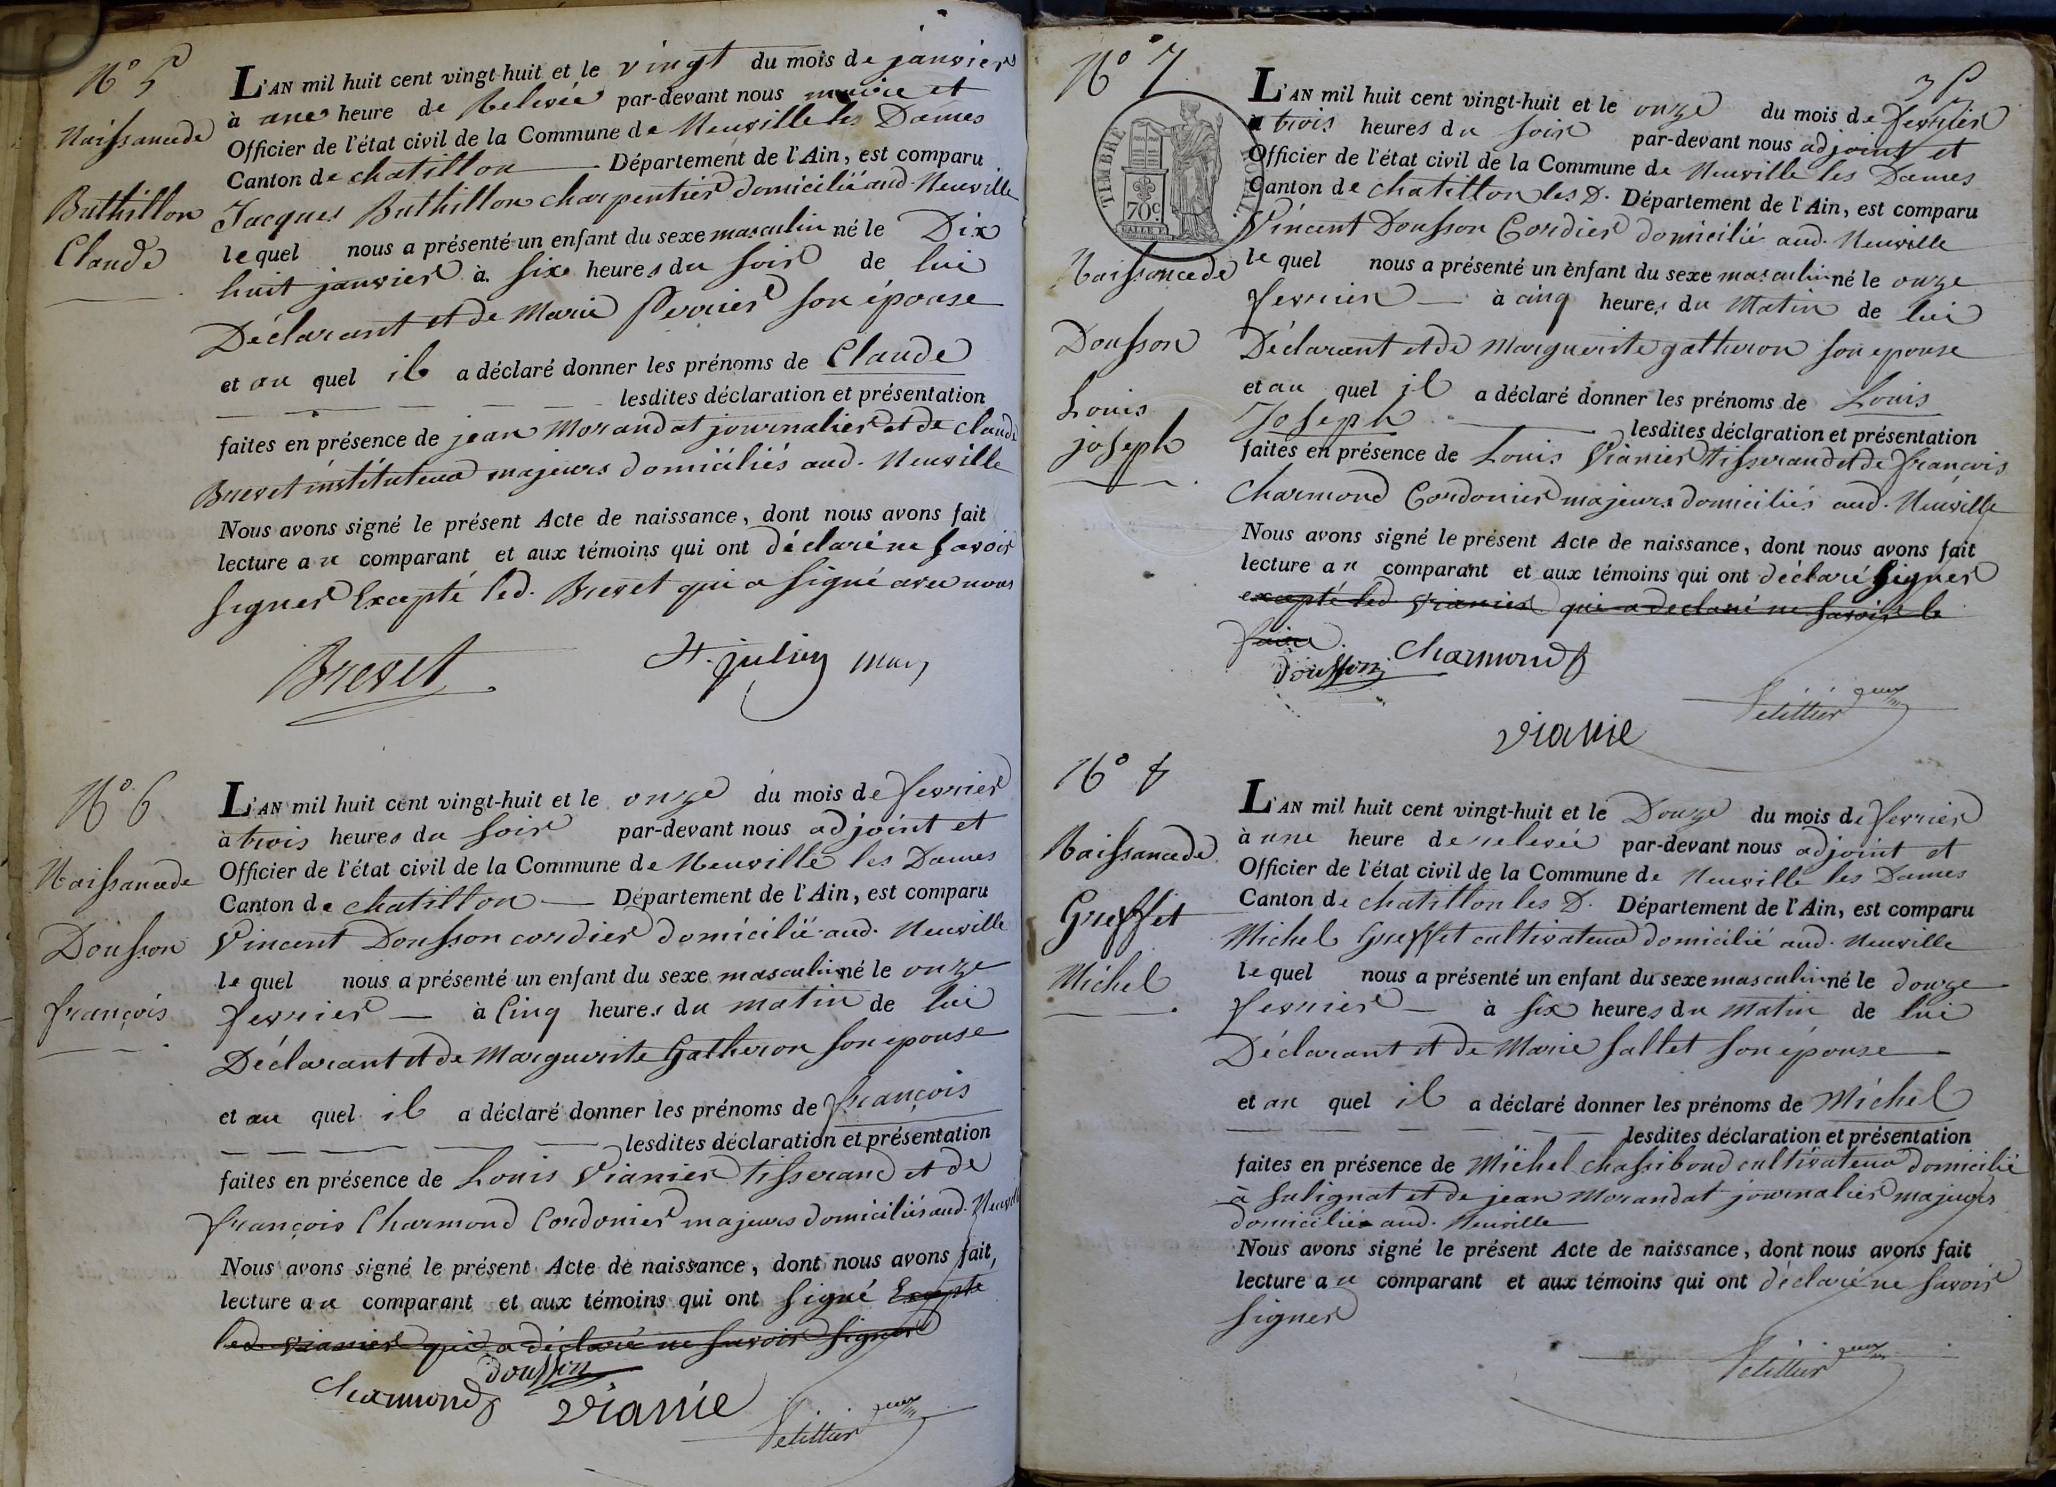 N° 5
Naissance de
Buthillon
Claude
L'AN mil huit cent vingt-huit et le vingt du mois de janvier
à une heure de Relevée par-devant nous maire et
Officier de l'état civil de la Commune de Neuville les Dames
Canton de chatillon Département de l'Ain, est comparu
Jacques Buthillon charpentier domicilié aud. Neuville
le quel nous a présenté un enfant du sexe masculin né le Dix
huit janvier à six heures du soir de lui
Déclarant et de Marie Perrier son épouse
et au quel il a déclaré donner les prénoms de Claude
lesdites déclaration et présentation
faites en présence de jean Morandat journalier et de claude
Brevet instituteur majeurs domiciliés aud. Neuville
Nous avons signé le présent Acte de naissance, dont nous avons fait
lecture au comparant et aux témoins qui ont déclaré ne savoir
signer Excepté led. Brevet qui a signé avec nous
Brevet St. julien
N° 6
Naissance de
Dousson
françois
L'AN mil huit cent vingt-huit et le onze du mois de fevrier
à trois heures du soir par-devant nous adjoint et
Officier de l'état civil de la Commune de Neuville les Dames
Canton de chatillon Département de l'Ain, est comparu
Vincent Dousson cordier domicilié aud. Neuville
le quel nous a présenté un enfant du sexe masculin né le onze
fevrier à Cinq heures du matin de lui
Déclarant et de Marguerite Gatheron son epouse
et au quel il a déclaré donner les prénoms de françois
lesdites déclaration et présentation
faites en présence de Louis Vianier tisserand et de
françois Charmond Cordonier majeurs domiciliés aud. Neuville
Nous avons signé le présent Acte de naissance, dont nous avons fait,
lecture au comparant et aux témoins qui ont signé Excepté
led. vianier qui a déclaré ne savoir signer
dousson
Charmond vianie Petitier
N° 7
3
TIMBRE ROYAL
70c
Naissance de
Dousson
Louis
joseph
L'AN mil huit cent vingt-huit et le onze du mois de fevrier
à trois heures du soir par-devant nous adjoint et
Officier de l'état civil de la Commune de Neuville les Dames
Canton de chatillon les D. Département de l'Ain, est comparu
Vincent Dousson Cordier domicilié aud. Neuville
le quel nous a présenté un enfant du sexe masculin né le onze
fevrier à cinq heures du Matin de lui
Déclarant et de Marguerite gatheron son epouse
et au quel il a déclaré donner les prénoms de Louis
Joseph lesdites déclaration et présentation
faites en présence de Louis Vianier tisserand et de françois
Charmond Cordonier majeurs domiciliés aud. Neuville
Nous avons signé le présent Acte de naissance, dont nous avons fait
lecture au comparant et aux témoins qui ont déclaré signer
excepté led. vianier qui a declaré ne savoir le
faire.
dousson Charmond
Petitier
vianie
N° 8
Naissance de
Greffet
Michel
L'AN mil huit cent vingt-huit et le Douze du mois de fevrier
à une heure de relevée par-devant nous adjoint et
Officier de l'état civil de la Commune de Neuville les Dames
Canton de chatillon les D. Département de l'Ain, est comparu
Michel Greffet cultivateur domicilié aud. Neuville
le quel nous a présenté un enfant du sexe masculin né le douze
fevrier à six heures du matin de lui
Déclarant et de Marie sallet son épouse
et au quel il a déclaré donner les prénoms de Michel
lesdites déclaration et présentation
faites en présence de Michel chassiboud cultivateur domicilié
à sulignat et de jean Morandat journalier majeurs
domiciliés aud. Neuville
Nous avons signé le présent Acte de naissance, dont nous avons fait
lecture au comparant et aux témoins qui ont déclaré ne savoir
signer
Petitier